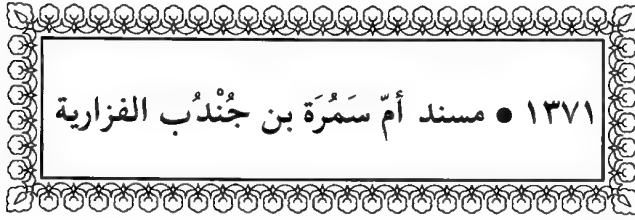 ١٣٧١ ● مسند أمّ سَمُرَة بن جُنْدُب الفزارية